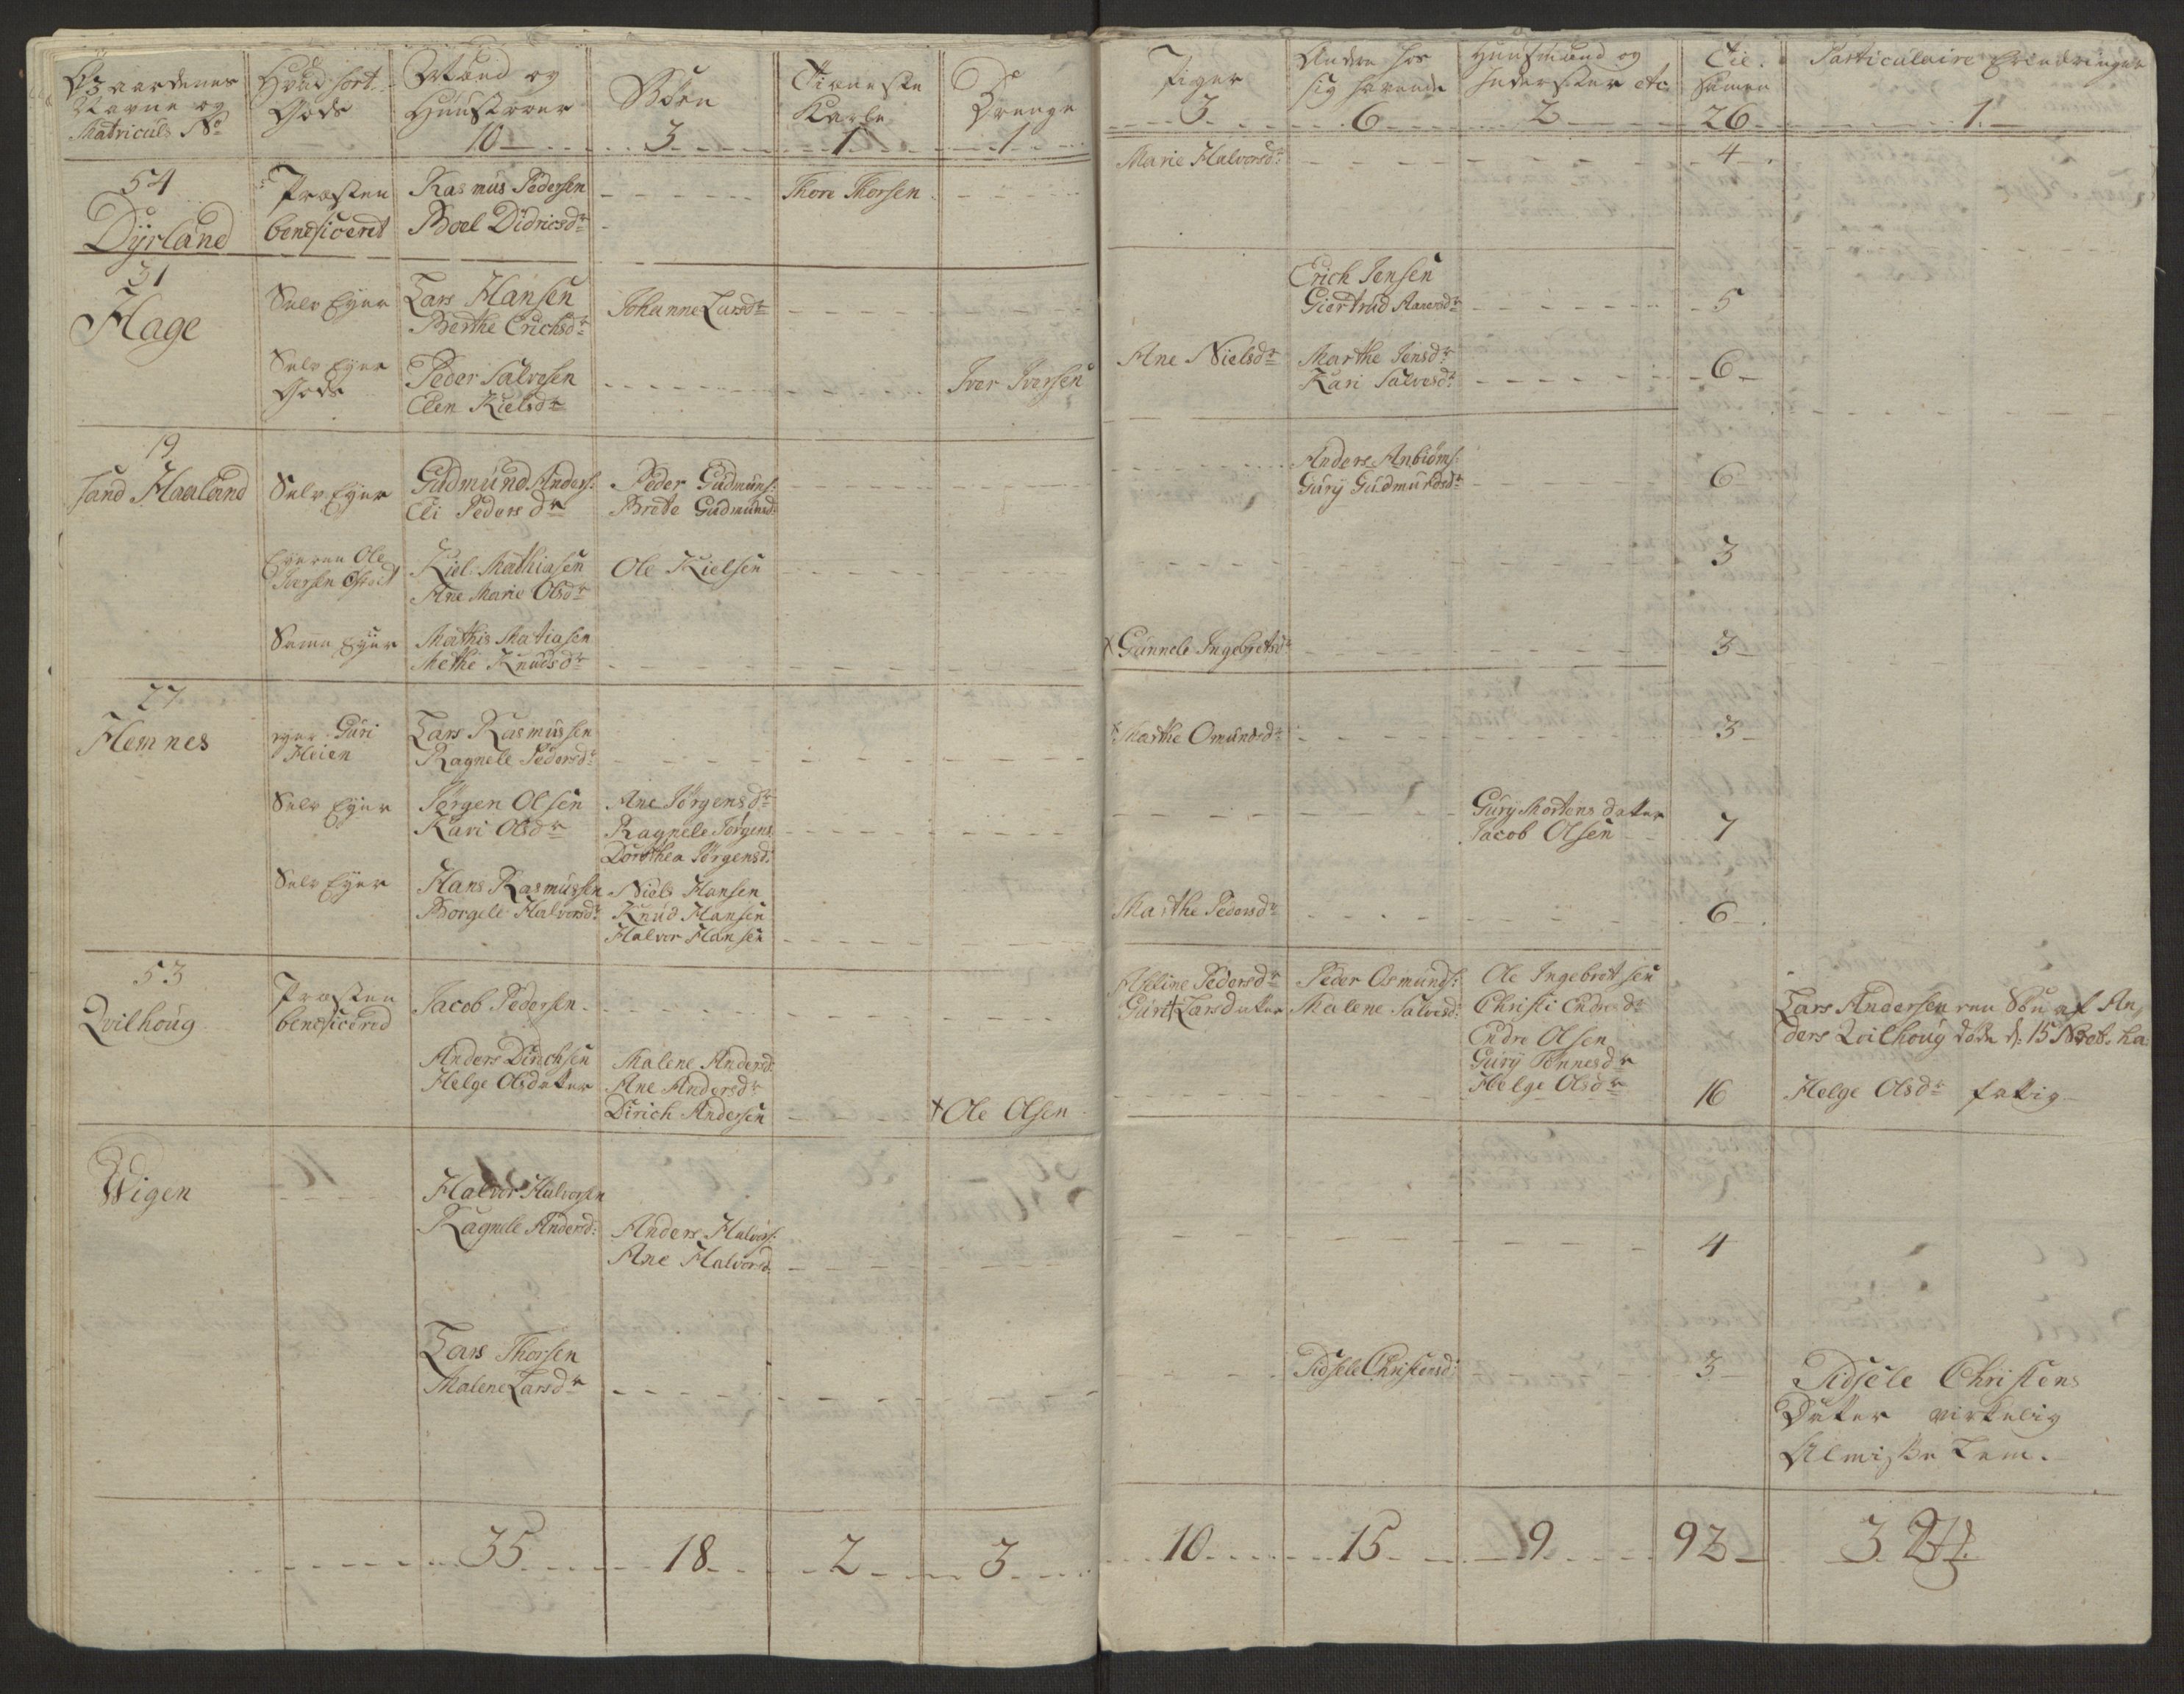 Gaardenes Navne og Matriculs No
Hvad sort Gods
Mand og Hustroer
Børn
Tieneste Karle
Drenge
Piger
Andre hos sig havende
Huusmænd og Inderster etc
Tilsamen
Particulaire Erindringer
10 3 1 1 3 6 2 26 1
54
Dÿrland
Præsten beneficeret
Rasmus Pedersen
Boel Didricsdr
Thore Thorsen
Marie Halvorsdr
4
31
Hage
Selv Eyer
Lars Hansen
Berthe Erichsdr
Johanne Larsdr
Erich Jensen
Giertrud Aanensdr
5
Selv Eyer Gods
Peder Salvesen
Elen Kielsdr
Iver Iversen
Ane Nielsdr
Marthe Jensdr
Kari Salvesdr
6
19
Sand Haaland
Selv Eyer
Gudmund Anders:
Eli Pedersdr
Peder Gudmuns:
Brete Gudmunsd:
Anders Anbiørns:
Gurÿ Gudmundsdr
6
Eyeren Ole
Iversen
Kiel Mathiasen
Ane Marie Olsdr
Ole Kielsen
3
Samme Eyer
Mathis Matiasen
Methe Knudsdr
Gunnele Ingebretsdr
3
27
Hemnes
eyer Guri
Heien
Lars Rasmussen
Ragnele Pedersdr
Marthe Omundsdr
3
Selv Eyer
Jørgen Olsen
Kari Olsdr
Ane Jørgensdr
Ragnele Jørgens
Dorthea Jørgensd:
Gurÿ Mortens datter
Jacob Olsen
7
Selv Eyer
Hans Rasmussen
Borgele Halvorsdr
Niels Hansen
Knud Hansen
Halvor Hansen
Marthe Pedersdr
6
53
Qvilhoug
Præsten
beneficered
Jacob Pedersen
Axeline Pedersdr
Guri Larsdatter
Peder Osmunds:
Malene Salvesd:
Ole Ingebretsen
Christi Endresdr
Endre Olsen
Gurÿ Tønnesdr
Helge Olsdr
Lars Andersen en Søn af An
ders Qvilhoug døde d: 15
Anders Dirichsen
Helge Olsdatter
Malene Andersd:
Ane Andersdr
Dirich Andersen
Ole Olsen
16
Helge Olsdr fattig
Wigen
Halvor Halvorsen
Ragnele Andersd:
Anders Halvors:
Ane Halvorsd:
4
Lars Thorsen
Malene Larsdr
Sidsele Christensd:
3
Sidsele Christens
Datter virkelig
Almisse Lem.
35 18 2 3 10 15 9 92 3